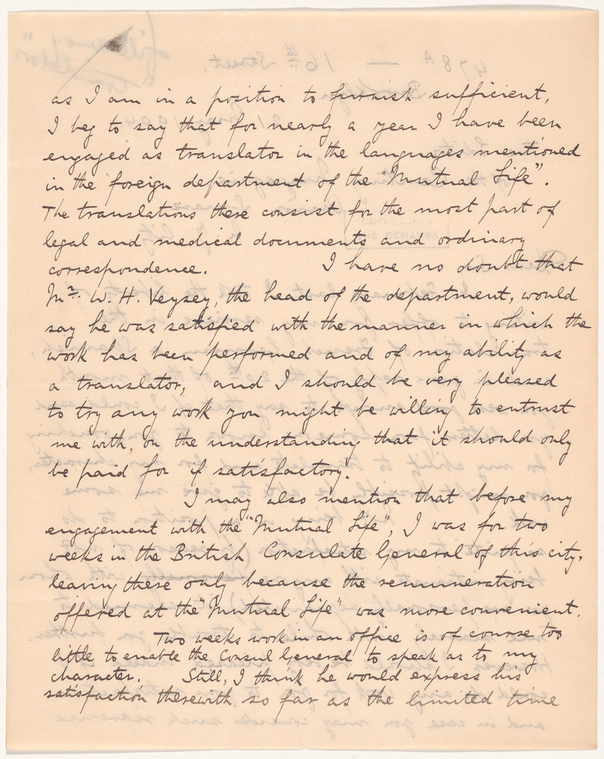 as I am in a position to furnish sufficient,
I beg to say that for nearly a year I have been
engaged as translator in the languages mentioned
in the foreign department of the "Mutual Life".
The translations there consist for the most part of
legal and medical documents and ordinary
correspondence. I have no doubt that
Mr. W. H. Veysey, the head of the department, would
say he was satisfied with the manner in which the
work has been performed and of my ability as
a translator, and I should be very pleased
to try any work you might be willin to entrust
me with, on the understanding that it should only
be paid for if satisfactory.
I may also mention that before my
engagement with the "Mutual Life", I was for two
weeks in the British Consulate General of this city,
leaving there only because the remuneration
offered at the "Mutual Life" was more convenient.
Two weeks work in an office is of course too
little to enable the Consul General to speak as to my
character. Still, I think he would express his
satisfaction therewith so far as the limited time